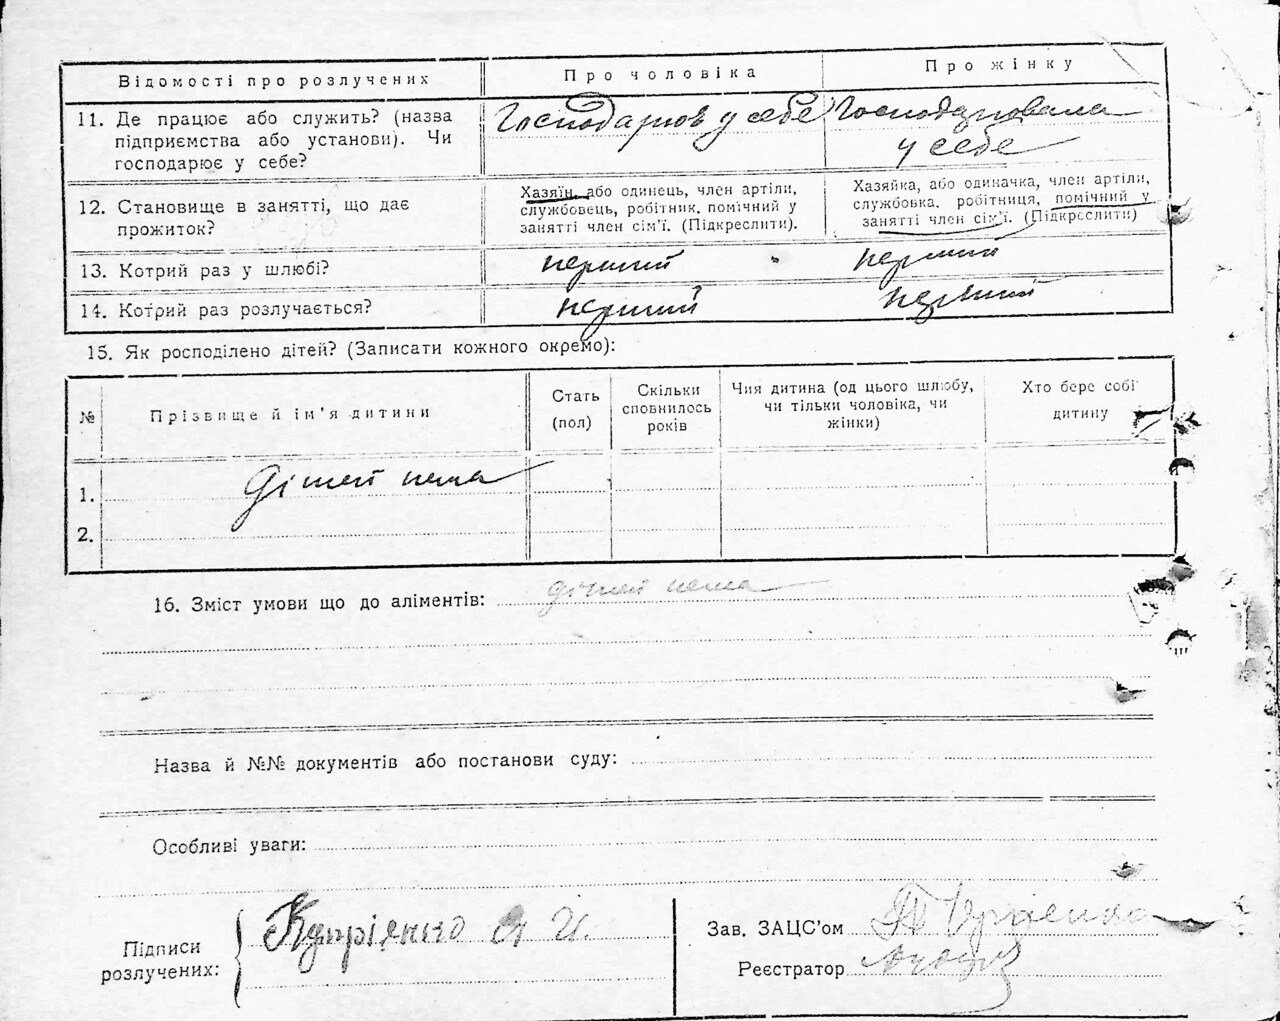 Відомості про розлучених Про чоловіка Про жінку
11. Де працює або служить? (назва підприємства або установи). Чи господарює у себе? Господарюв у себе Господарювала у себе
12. Становище в занятті, що дає прожиток? Хазяїн, або одинець, член артіли, службовець, робітник, помічний у занятті член сім'ї. (Підкреслити). Хазяйка, або одиначка, член артіли, службовка, робітниця, помічний у занятті член сім'ї. (Підкреслити)
13. Котрий раз у шлюбі? перший перший
14. Котрий раз розлучається? перший перший
15. Як росподілено дітей? (Записати кожного окремо):
№ Прізвище й ім'я дитини Стать (пол) Скільки сповнилось років Чия дитина (од цього шлюбу, чи тільки чоловіка, чи жінки) Хто бере собі дитину
1. дітей нема
2.
16. Зміст умови що до аліментів: дітей нема
Назва й №№ документів або постанови суду:
Особливі уваги:
Підписи розлучених: Купріянко Я И.
Зав. ЗАЦС'ом
Реєстратор